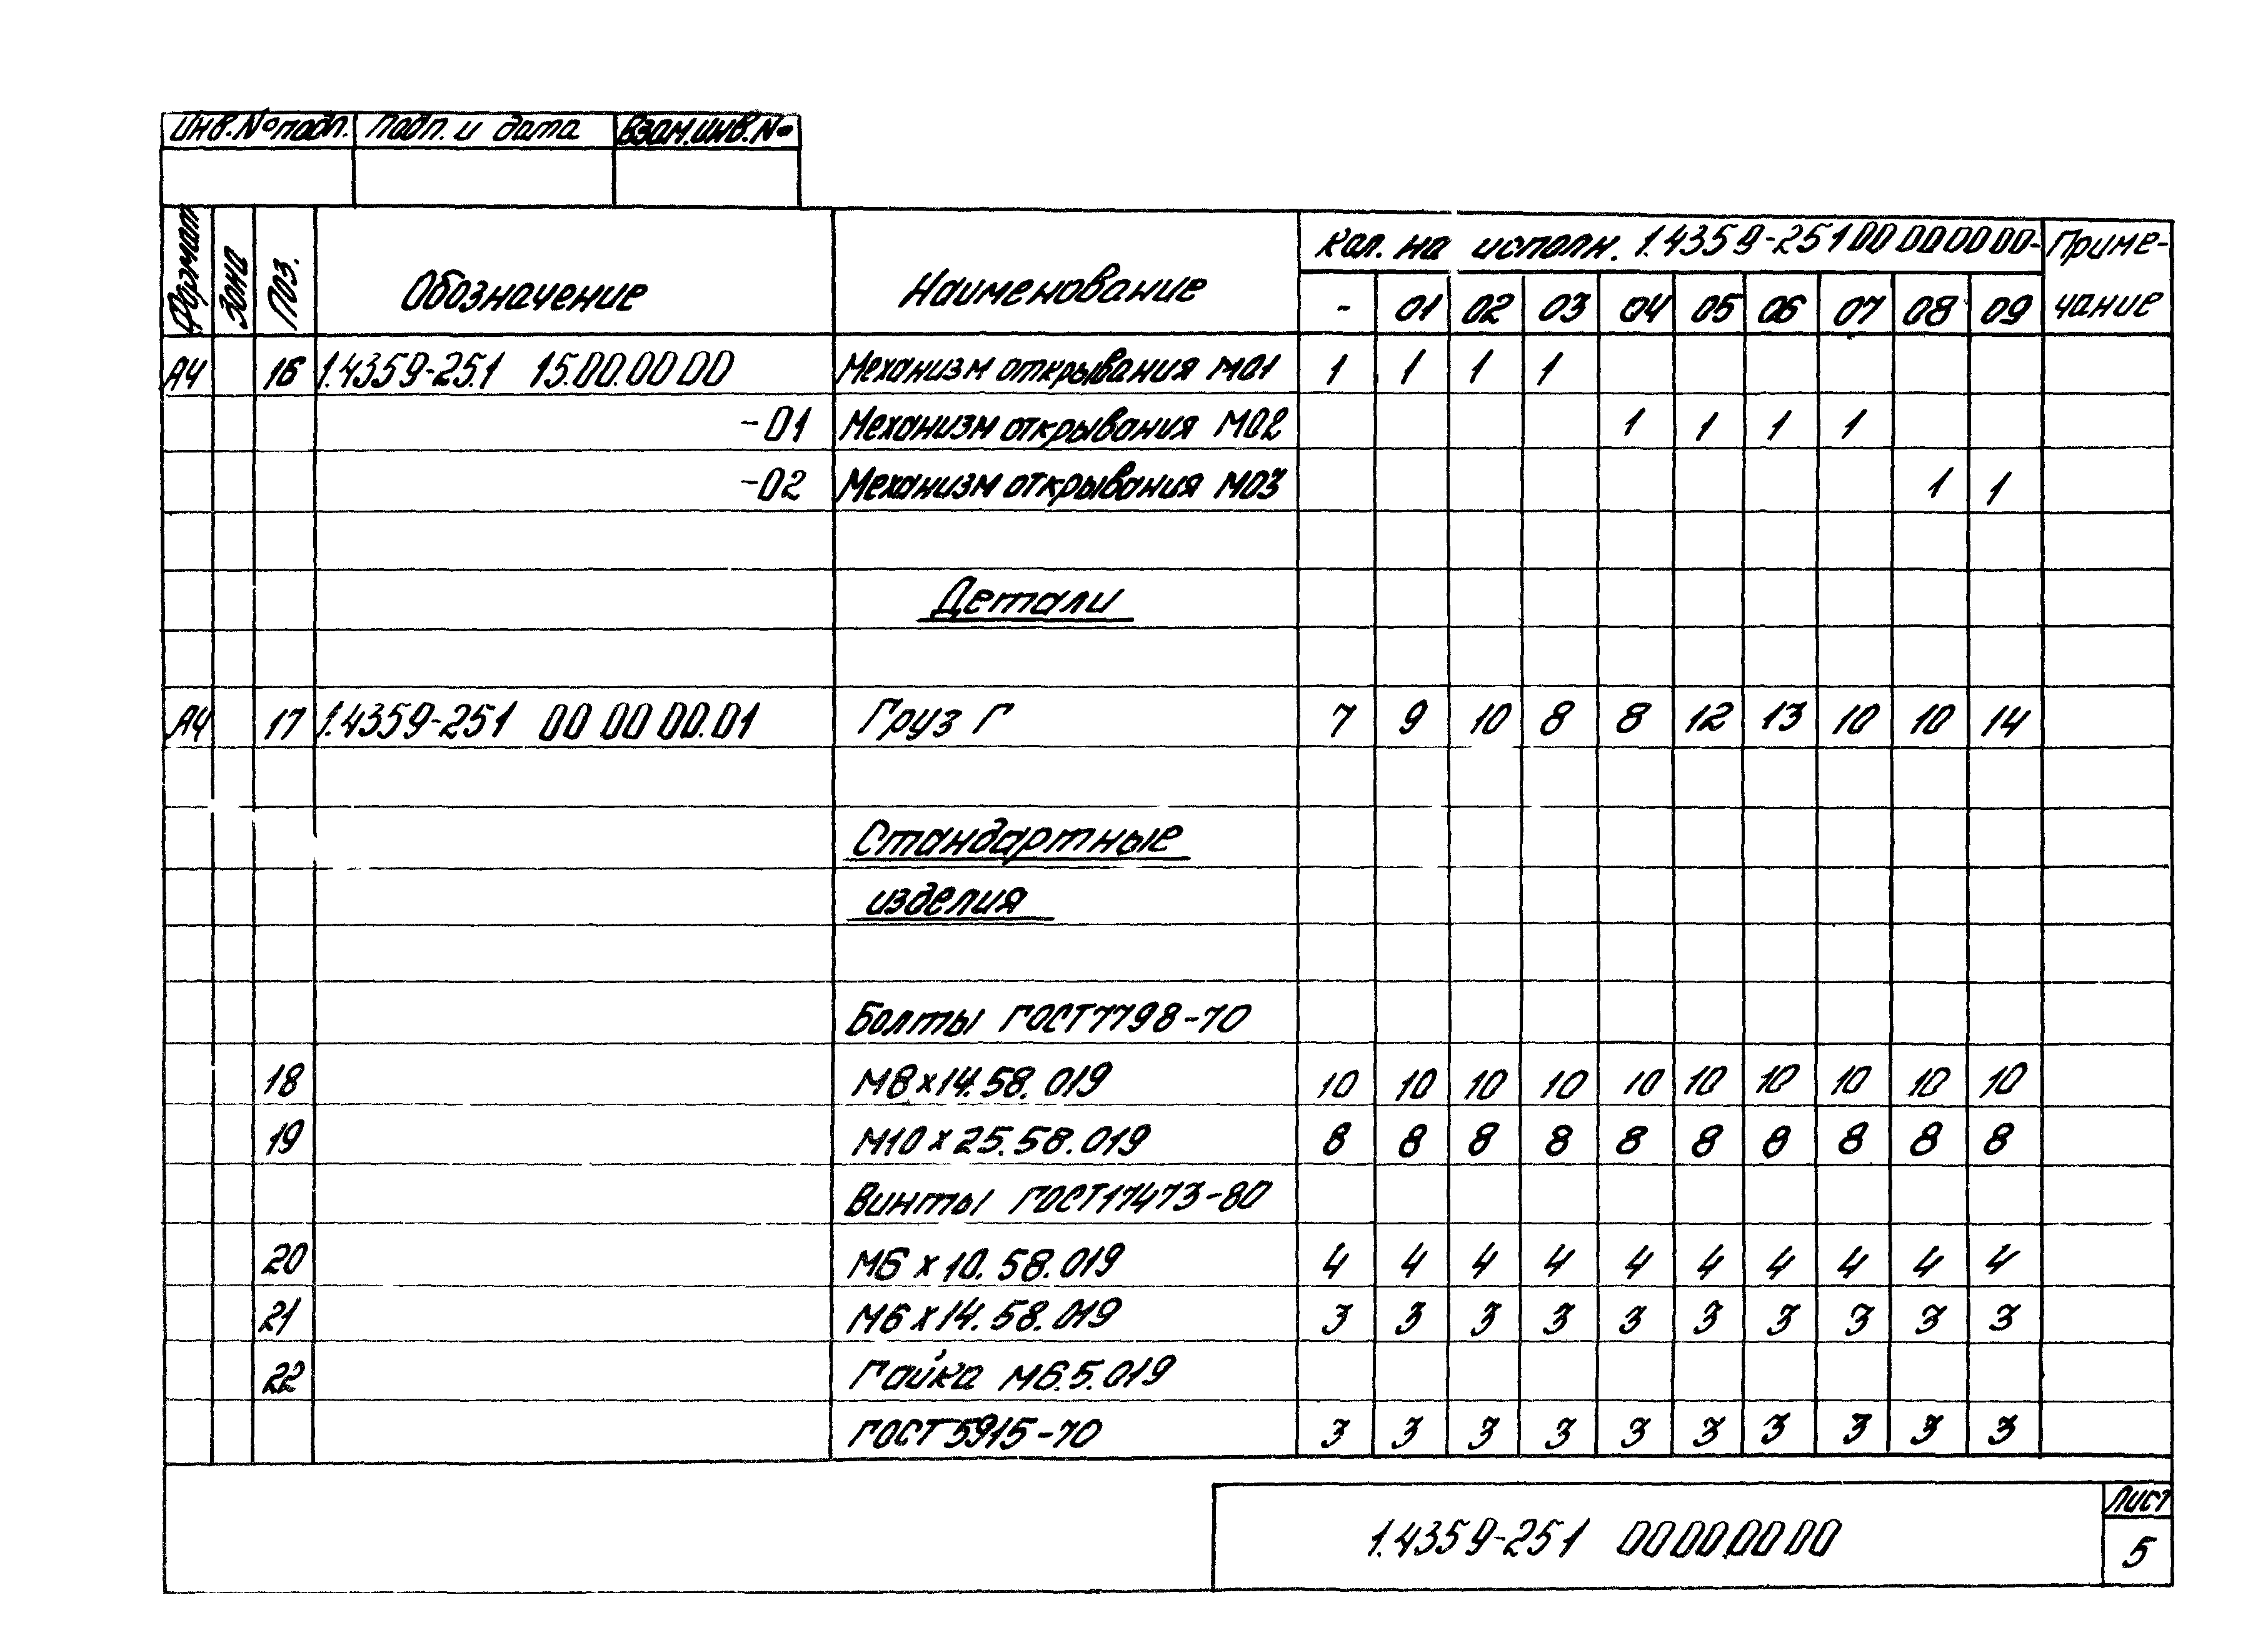 Инв.№подп. Подп. и дата Взам.инв.№
Формат Зона Поз. Обозначение Наименование Кол. на исполн. 1.4359-251 00 00 00 00- Приме-
- 01 02 03 04 05 06 07 08 09 чание
А4 16 1.4359-25.1 15.00.00 00 Механизм открывания М01 1 1 1 1
-01 Механизм открывания М02 1 1 1 1
-02 Механизм открывания М03 1 1
Детали
А4 17 1.4359-251 00 00 00.01 Груз Г 7 9 10 8 8 12 13 10 10 14
Стандартные
изделия
Болты ГОСТ7798-70
18 М8х14.58.019 10 10 10 10 10 10 10 10 10 10
19 М10х25.58.019 8 8 8 8 8 8 8 8 8 8
Винты ГОСТ17473-80
20 М6х10.58.019 4 4 4 4 4 4 4 4 4 4
21 М6х14.58.019 3 3 3 3 3 3 3 3 3 3
22 Гайка М6.5.019
ГОСТ5915-70 3 3 3 3 3 3 3 3 3 3
Лист
1.4359-251 00 00 00 00 5